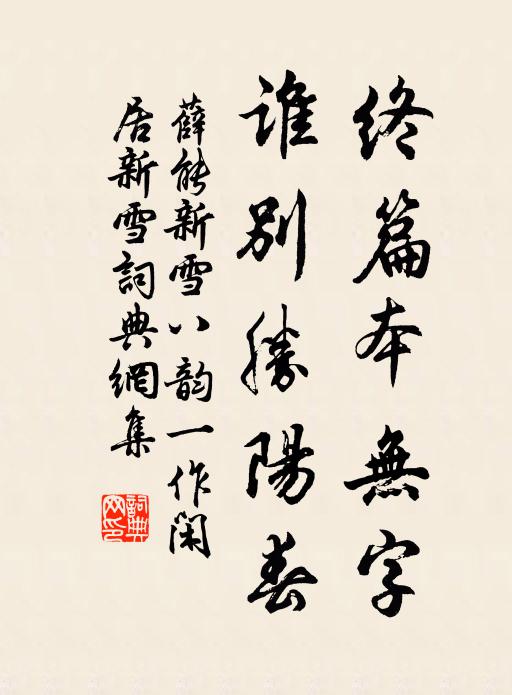 終篇本無字
誰別勝陽春
薛能新雪八韵一作閑
居新雪詞典網集
詞典網印